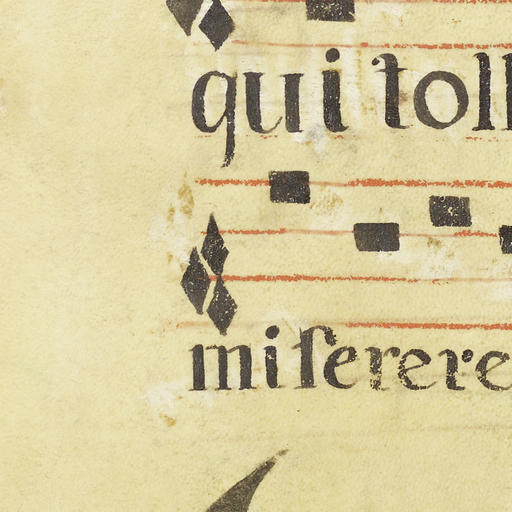 qui toll
miſerere